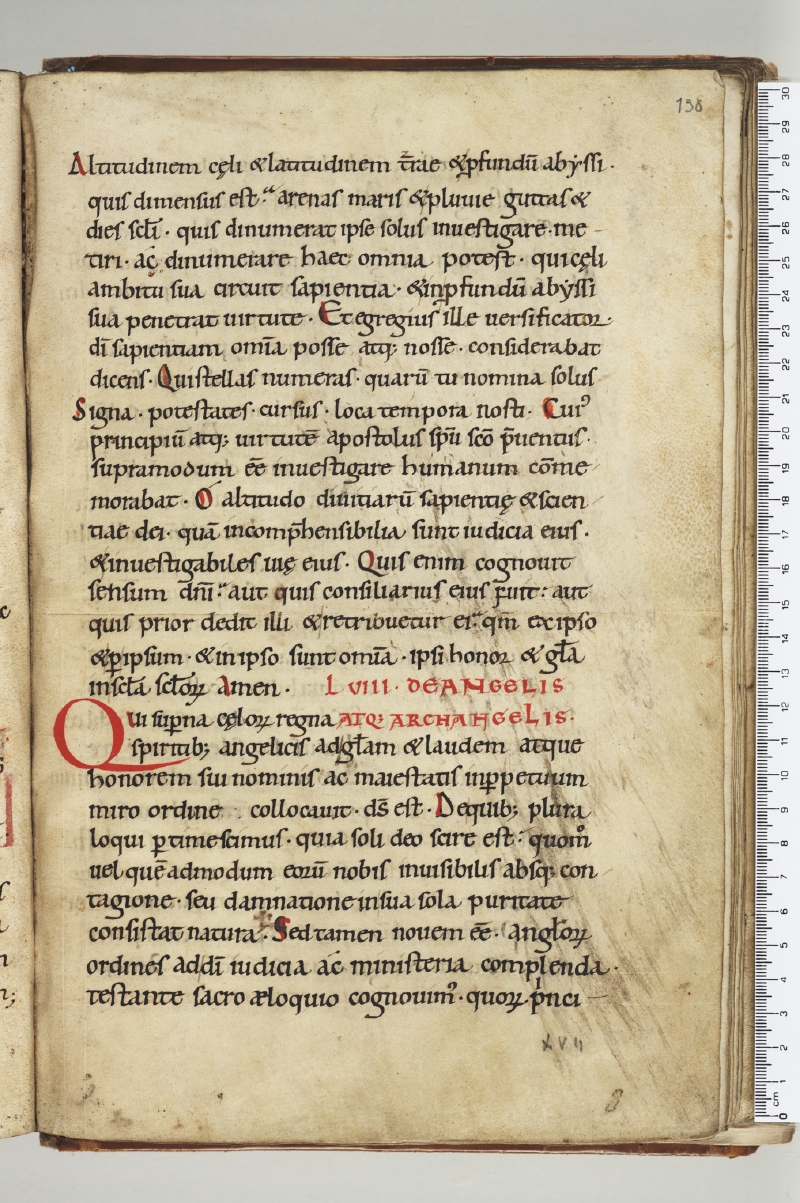 138
Altitudinem cęli & latitudinem t̄rae & ꝓfundū abẏssi ·
quis dimensus est · arenas maris & pluuie guttas &
dies scl̄i · quis dinumerat ipse solus inuestigare · me
tiri · ac dinumerare haec omnia potest · qui cęli
ambitū sua circuit sapientia · & in ꝓfundū abẏssi
sua penetrat uirtute · Et egregius ille uersificator
dī sapientiam om̄ia posse atq; nosse · considerabat
dicens · Qui stellas numeras · quarū tu nomina solus
Signa · potestates · cursus · loca tempora nosti · Cuiꝰ
principiū atq; uirtutē apostolus sp̄u sc̄o p̄uentus ·
supra modum ēē inuestigare humanum cōme
morabat · O altitudo diuitiarū sapientię & scien
tiae dei · quā incomp̄hensibilia sunt iudicia eius ·
& inuestigabiles uię eius · Quis enim cognouit
sensum dn̄i · aut quis consiliarius eius fuit · aut
quis prior dedit illi & retribuetur ei · qm̄ ex ipso
& ꝑ ipsum · & in ipso sunt om̄ia · ipsi honor & gl̄a
in scl̄a scl̄oꝝ Amen · LVIII · DE ANGELIS
Qui sup̄na cęloꝝ regna ATQ; ARCHANGELIS ·
spiritib; angelicis ad gl̄am & laudem atque
honorem sui nominis ac maiestatis in ꝑpetuum
miro ordine collocauit · ds̄ est · De quib; plura
loqui ꝑtimescimus · quia soli deo scire est · quomꝰ
uel quēadmodum eorū nobis inuisibilis absq; con
tagione · seu damnatione in sua sola puritate
consistat natura · Sed tamen nouem ēē · angl̄oꝝ
ordines ad dī iudicia ac ministeria complenda ·
testante sacro æloquio cognouimꝰ · quoꝝ p̄nci
XVII